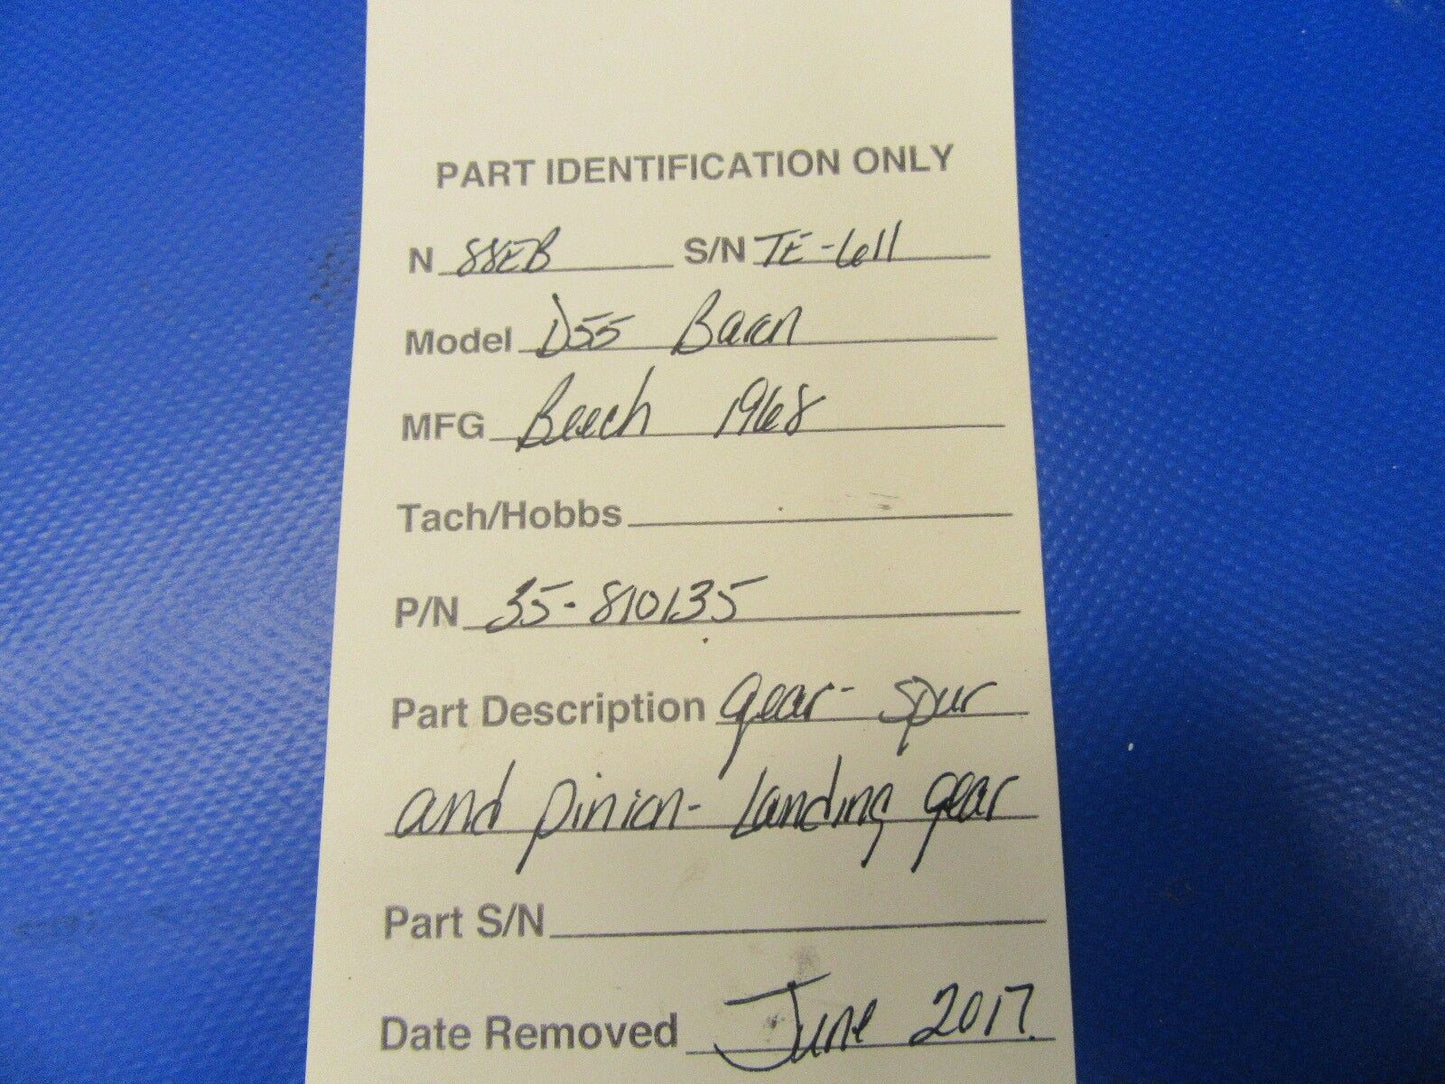 PART IDENTIFICATION ONLY
N 88EB S/N TE-611
Model D55 Baron
MFG Beech 1968
Tach/Hobbs
P/N 35-810135
Part Description gear- spur
and pinion- landing gear
Part S/N
Date Removed June 2017.